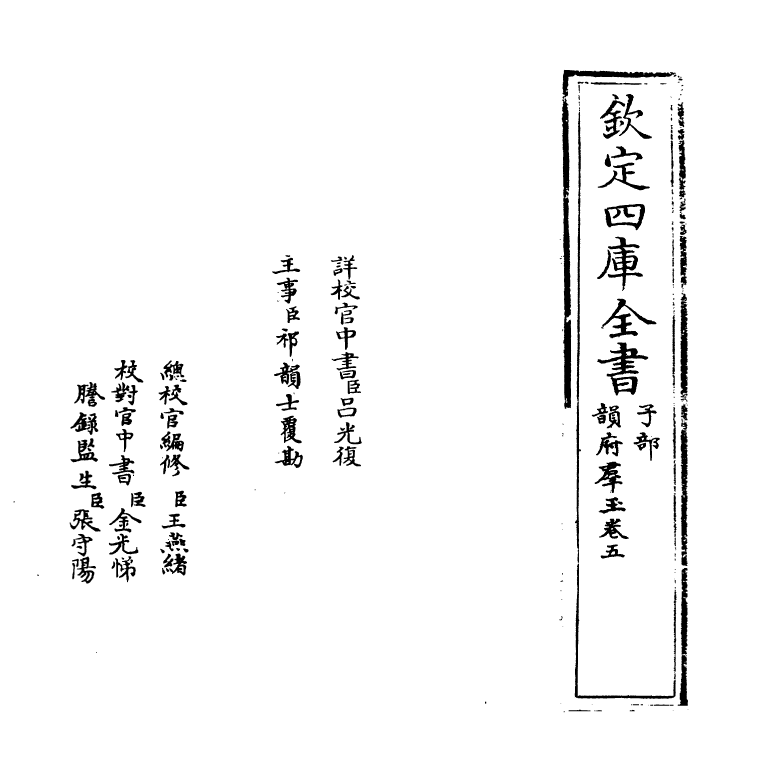 欽定四庫全書
子部
韻府羣玉卷五
詳校官中書臣呂光復
主事臣祁韻士覆勘
總校官編修臣王燕緒
校對官中書臣金光悌
謄錄監生臣張守陽